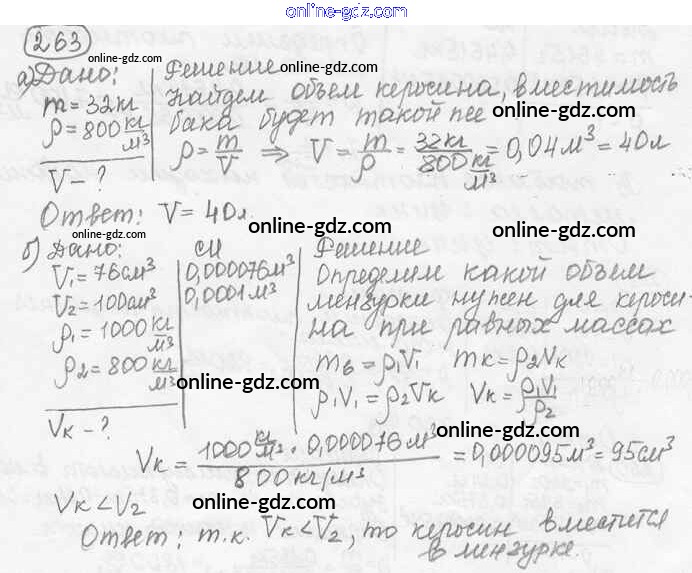 online-gdz.com
online-gdz.com
263
а) Дано:
m = 32 кг
ρ = 800 кг/м³
V - ?
Решение
online-gdz.com
Найдем объем керосина, вместимость
бака будет такой же
online-gdz.com
ρ = m/V ⇒ V = m/ρ = 32 кг / 800 кг/м³ = 0,04 м³ = 40 л
online-gdz.com
Ответ: V = 40 л.
online-gdz.com
б) Дано:
V₁ = 76 см³
V₂ = 100 см³
ρ₁ = 1000 кг/м³
ρ₂ = 800 кг/м³
Vк - ?
СИ
0,000076 м³
0,0001 м³
Решение
online-gdz.com
Определим какой объем
мензурки нужен для кероси-
на при равных массах
online-gdz.com
mв = ρ₁V₁ mк = ρ₂Vк
online-gdz.com
ρ₁V₁ = ρ₂Vк Vк = ρ₁V₁/ρ₂
online-gdz.com
Vк = 1000 кг/м³ · 0,000076 м³ / 800 кг/м³ = 0,000095 м³ = 95 см³
online-gdz.com
Vк < V₂
online-gdz.com
Ответ: т.к. Vк < V₂, то керосин вместится
в мензурке.
online-gdz.com